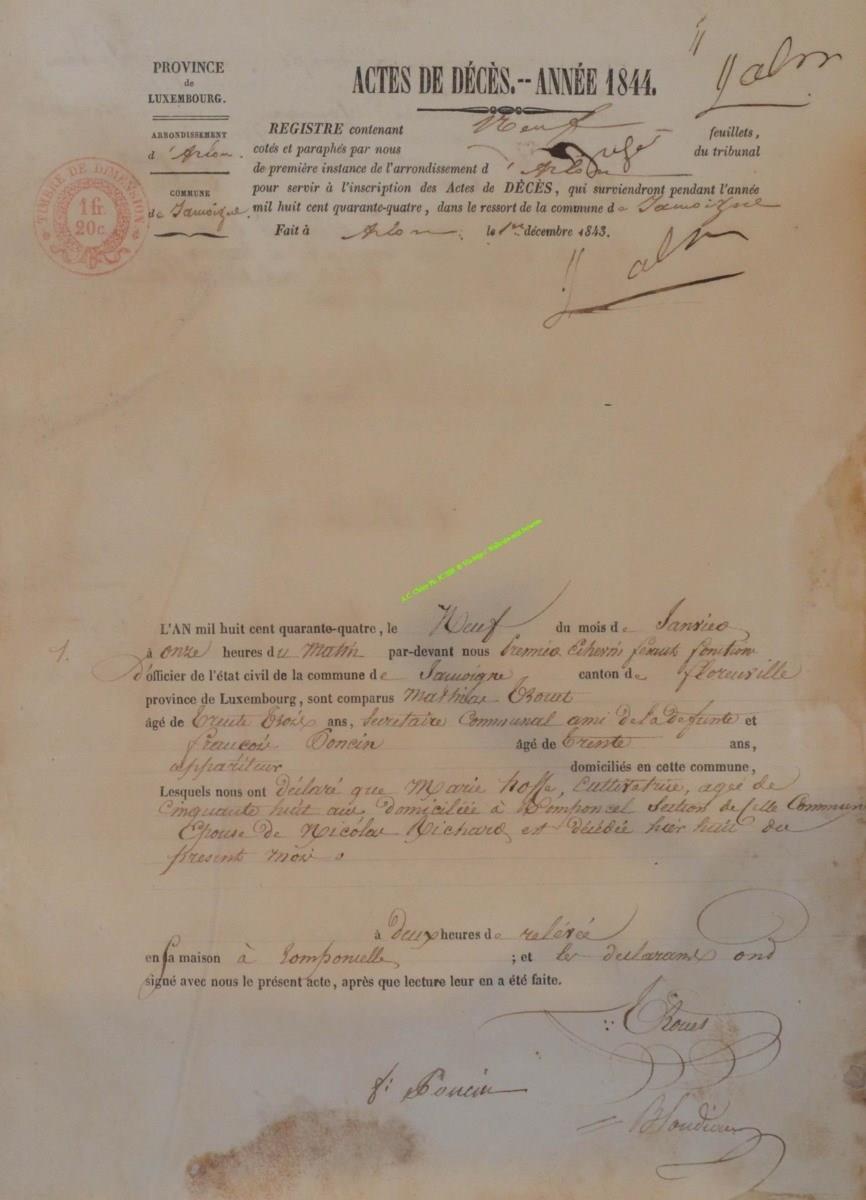 PROVINCE
de
LUXEMBOURG.
ARRONDISSEMENT
d'Arlon.
COMMUNE
de Jamoigne
TIMBRE DE DIMENSION
1 fr.
20 c.
ACTES DE DÉCÈS.--ANNÉE 1844.
REGISTRE contenant Neuf feuillets,
cotés et paraphés par nous Juge du tribunal
de première instance de l'arrondissement d'Arlon
pour servir à l'inscription des Actes de DÉCÈS, qui surviendront pendant l'année
mil huit cent quarante-quatre, dans le ressort de la commune de Jamoigne
Fait à Arlon. le 1er décembre 1843.
1.
L'AN mil huit cent quarante-quatre, le Neuf du mois de Janvier
à onze heures du Matin par-devant nous Premier Echevin fesant fonction
d'officier de l'état civil de la commune de Jamoigne canton de florenville
province de Luxembourg, sont comparus Mathias Trouet
âgé de trente trois ans, Secretaire Communal ami de la defunte et
françois Poncin âgé de trente ans,
appariteur domiciliés en cette commune,
Lesquels nous ont déclaré que Marie hosse, Cultivatrice, agée de
Cinquante huit ans domiciliée à Section de cette Commune
Epouse de Nicolas Richard, est décédée hier huit du
présent mois
à deux heures de relevée
en sa maison à romponcelle ; et les declarans ond
signé avec nous le présent acte, après que lecture leur en a été faite.
Trouet
f: Poncin